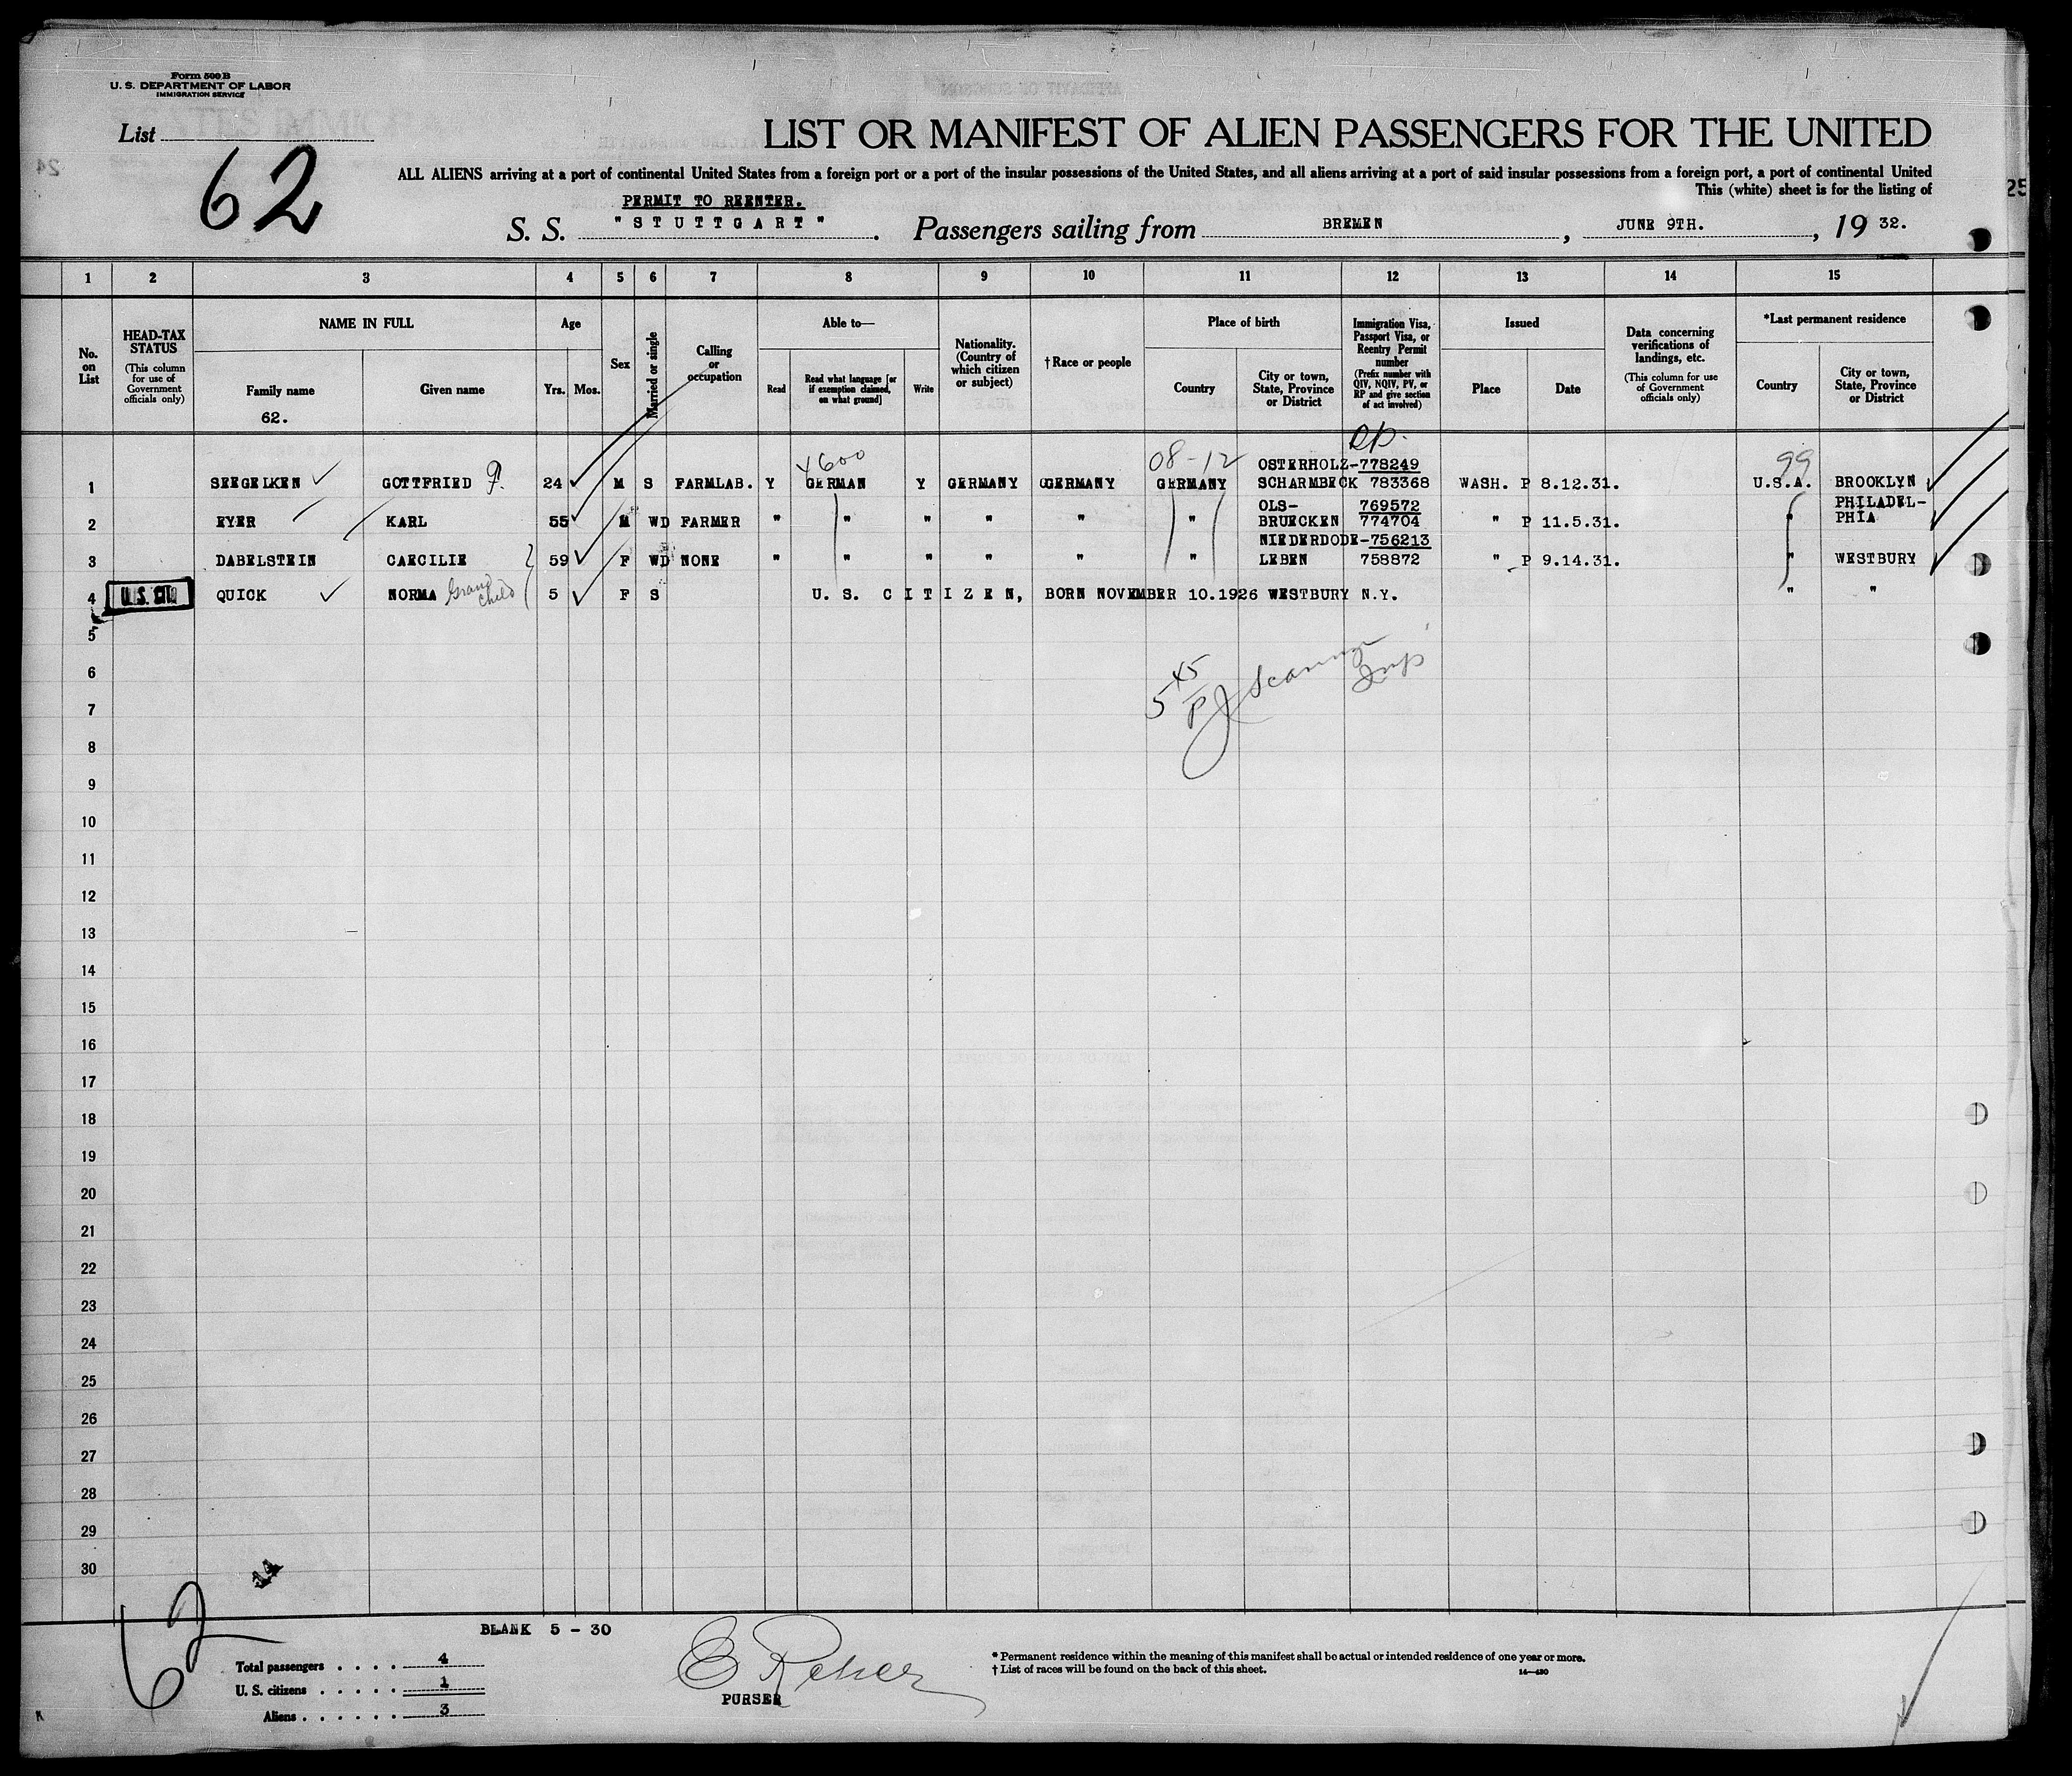 Form 500 B
U. S. DEPARTMENT OF LABOR
IMMIGRATION SERVICE
List
62
LIST OR MANIFEST OF ALIEN PASSENGERS FOR THE UNITED
ALL ALIENS arriving at a port of continental United States from a foreign port or a port of the insular possessions of the United States, and all aliens arriving at a port of said insular possessions from a foreign port, a port of continental United
This (white) sheet is for the listing of
24
25
PERMIT TO REENTER.
S. S. "STUTTGART". Passengers sailing from BREMEN, JUNE 9TH., 19 32.
1 2 3 4 5 6 7 8 9 10 11 12 13 14 15
No. on List
HEAD-TAX STATUS
(This column for use of Government officials only)
NAME IN FULL
Family name
62.
Given name
Age
Yrs. Mos.
Sex
Married or single
Calling or occupation
Able to—
Read
Read what language [or if exemption claimed, on what ground]
Write
Nationality. (Country of which citizen or subject)
† Race or people
Place of birth
Country
City or town, State, Province or District
Immigration Visa, Passport Visa, or Reentry Permit number
(Prefix number with QIV, NQIV, PV, or RP and give section of act involved)
Issued
Place
Date
Data concerning verifications of landings, etc.
(This column for use of Government officials only)
*Last permanent residence
Country
City or town, State, Province or District
4600 08-12 99
OSTERHOLZ-778249
1 SEEGELKEN GOTTFRIED F. 24 M S FARMLAB. Y GERMAN Y GERMANY GERMANY GERMANY SCHARMBECK 783368 WASH. P 8.12.31. U.S.A. BROOKLYN
OLS- 769572 PHILADEL-
2 EYER KARL 55 M WD FARMER " " " " " " BRUECKEN 774704 " P 11.5.31. " PHIA
NIEDERDODE-756213
3 DABELSTEIN CAECILIE 59 F WD NONE " " " " " " LEBEN 758872 " P 9.14.31. " WESTBURY
4 U.S. CIT. QUICK NORMA Grand child 5 F S U. S. CITIZEN, BORN NOVEMBER 10.1926 WESTBURY N.Y. " "
5
6
7
8
9
10
11
12
13
14
15
16
17
18
19
20
21
22
23
24
25
26
27
28
29
30
62
BLANK 5 - 30
Total passengers . . . . 4
U. S. citizens . . . . . 1
Aliens . . . . . . 3
PURSER
* Permanent residence within the meaning of this manifest shall be actual or intended residence of one year or more.
† List of races will be found on the back of this sheet.
14—430